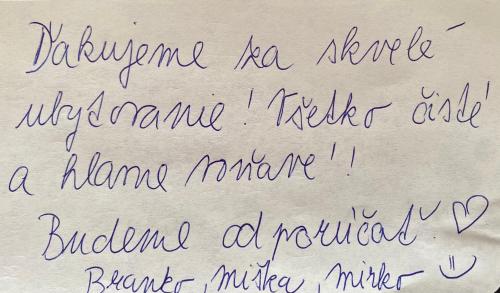 Ďakujeme za skvelé
ubytovanie! Všetko čisté
a hlavne voňavé!!
Budeme odporúčať! ♡
Branko, Miška, Mirko :)